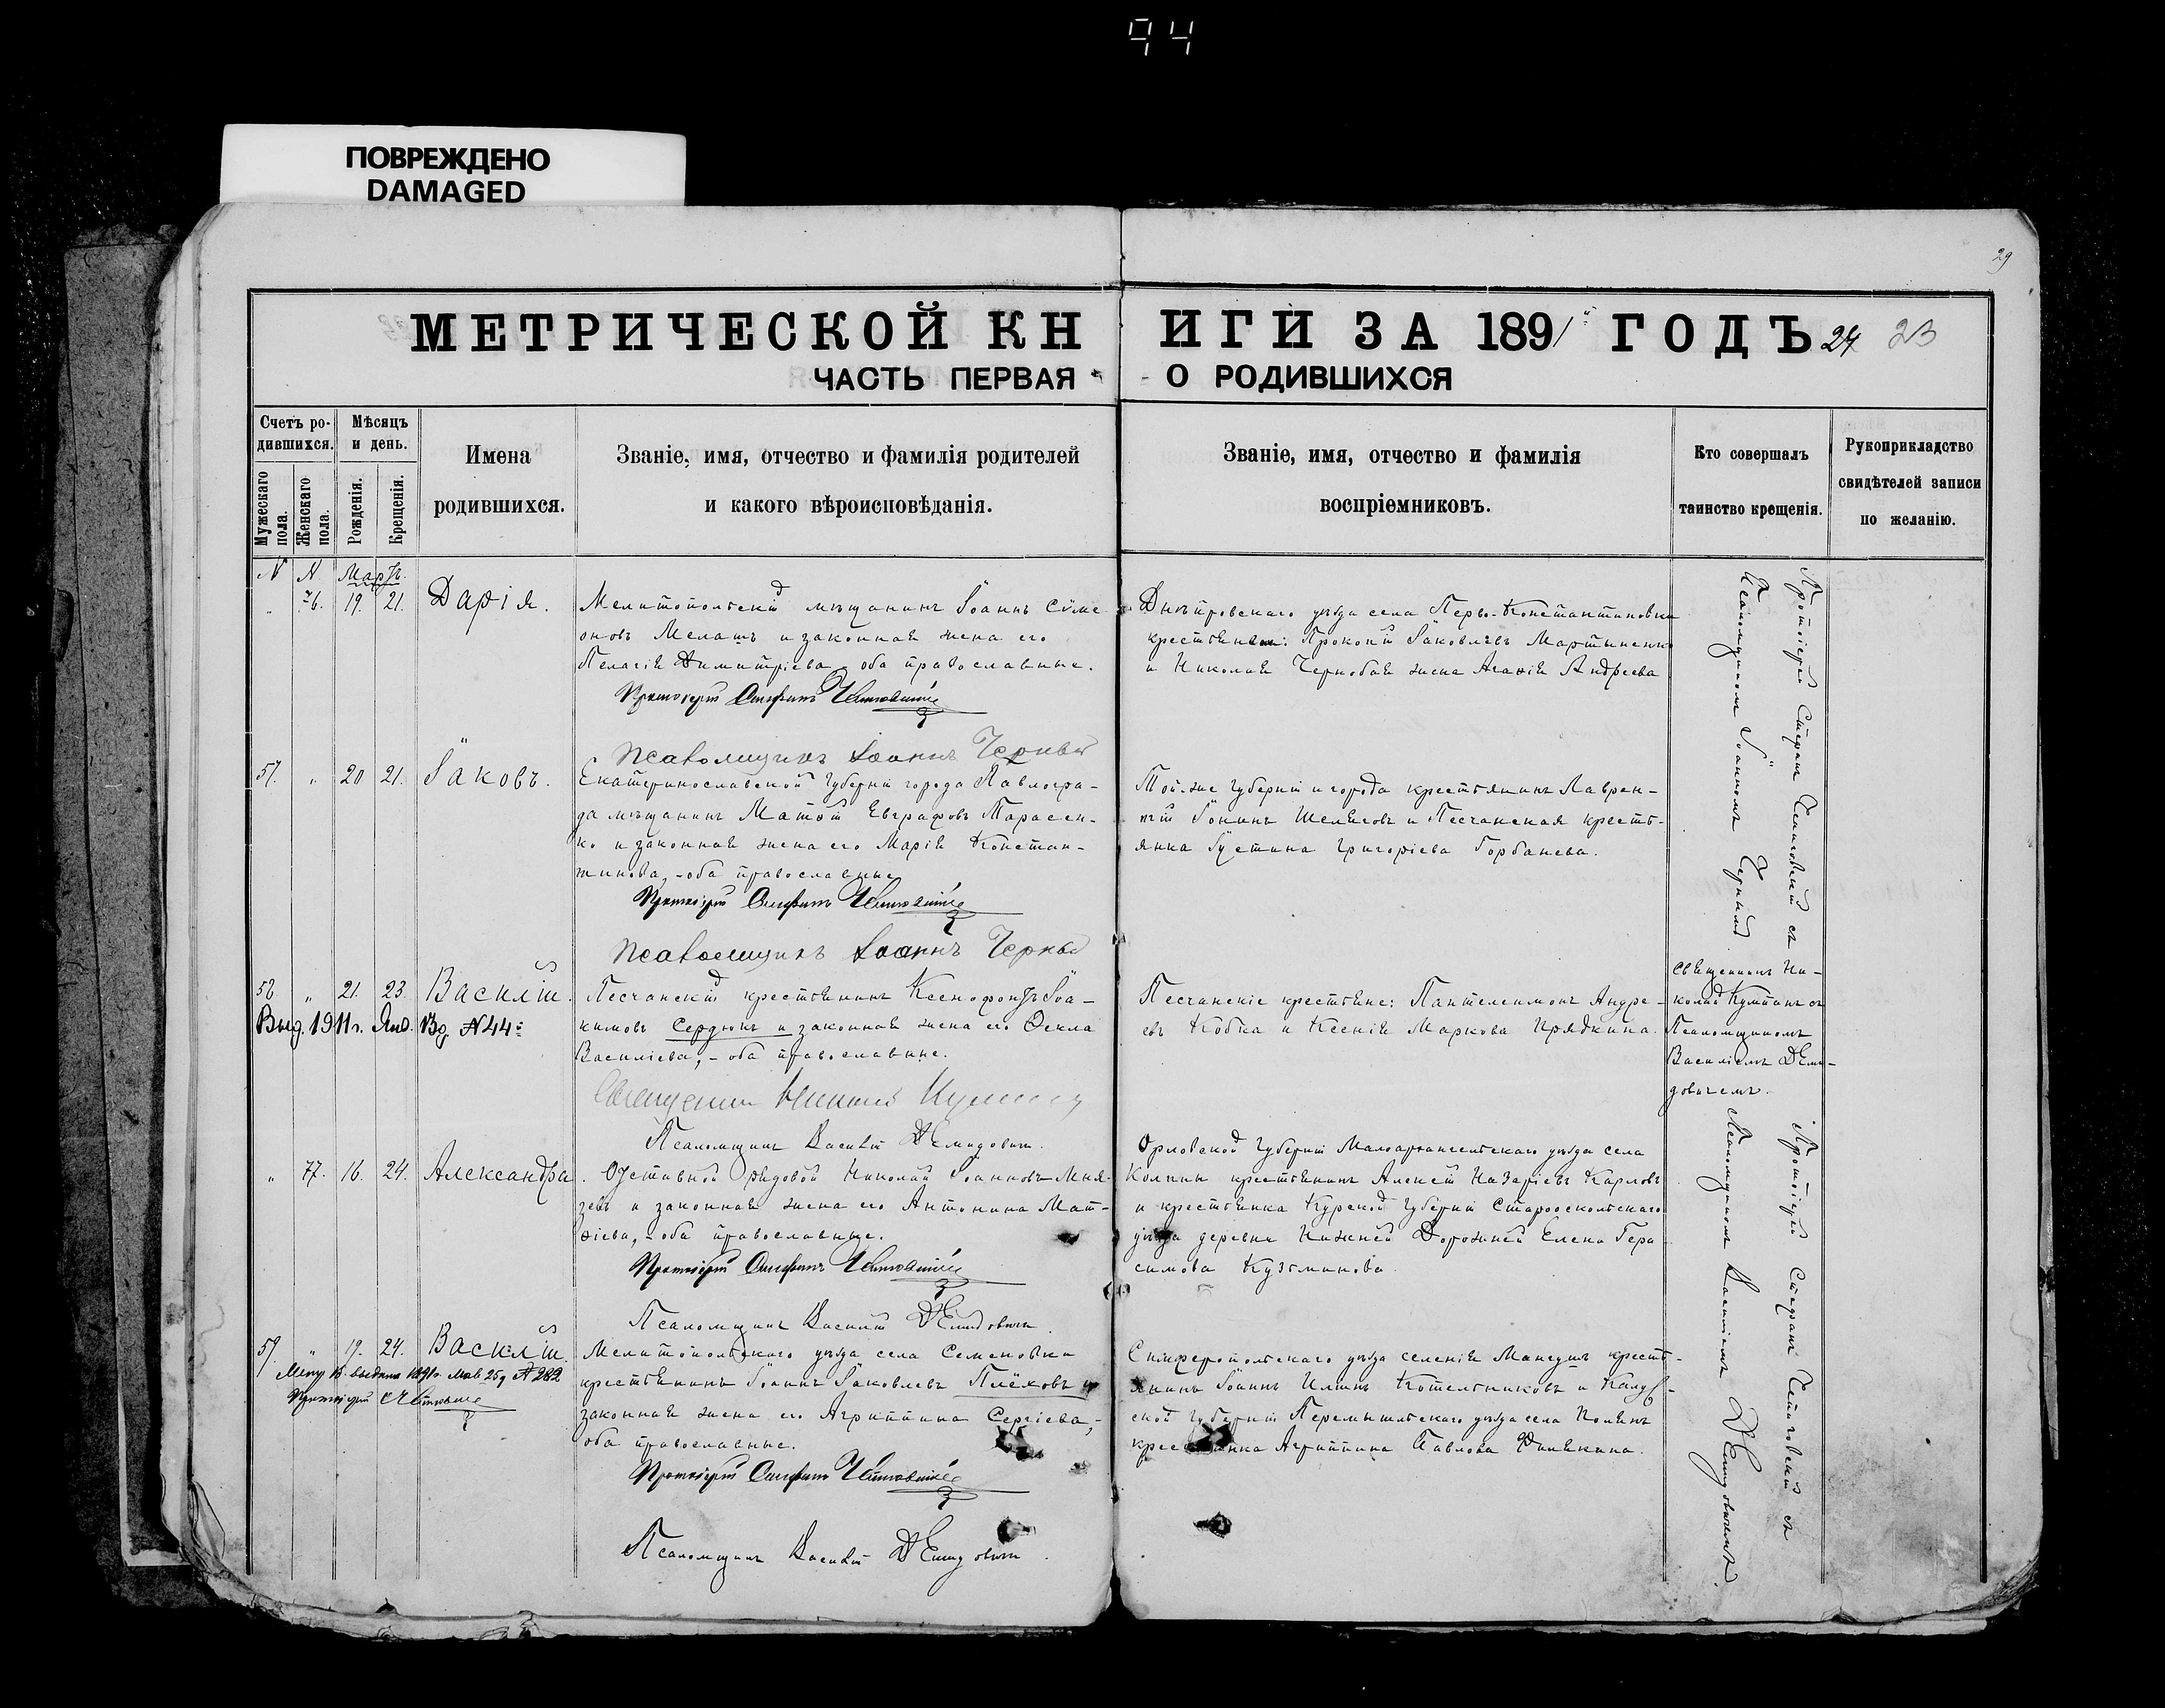 94
ПОВРЕЖДЕНО
DAMAGED
29
МЕТРИЧЕСКОЙ КНИГИ ЗА 1891й ГОДЪ 24 23
ЧАСТЬ ПЕРВАЯ - О РОДИВШИХСЯ
Счетъ родившихся.
Мужескаго пола.
Женскаго пола.
Мѣсяцъ и день.
Рожденія.
Крещенія.
Имена родившихся.
Званіе, имя, отчество и фамилія родителей
и какого вѣроисповѣданія.
Званіе, имя, отчество и фамилія
воспріемниковъ.
Кто совершалъ
таинство крещенія.
Рукоприкладство
свидѣтелей записи
по желанію.
N N. Мартъ.
" 76. 19. 21. Дарія.
Мелитопольскій мѣщанинъ Іоаннъ Симе
оновъ Мелашъ и законная жена его
Пелагія Димитріева, оба православные.
Протоіерей Стефанъ
Псаломщикъ Іоаннъ Черный
Днѣпровскаго уѣзда села Перво-Константиновки
крестьяне: Прокопій Іаковлевъ Мартыненко
и Николая Чернобая жена Агафія Андреева
Протоіерей Стефанъ съ
Псаломщикомъ Іоанномъ Чернымъ
57. " 20 21. Іаковъ.
Екатеринославской Губерніи города Павлогра-
да мѣщанинъ Матѳій Евграфовъ Тарасен-
ко и законная жена его Марія Констан-
тинова, - оба православные
Протоіерей Стефанъ
Псаломщикъ Іоаннъ Черный
Той-же Губерніи и города крестьянинъ Лаврен-
тій Іонинъ и Песчанская кресть-
янка Іустина Григоріева Горбанева.
58 " 21. 23. Василій.
Выд. 1911 г. Янв. 13 д. №44:
Песчанскій крестьянинъ Ксенофонтъ Іоа-
кимовъ Сердюкъ и законная жена его Ѳекла
Василіева, - оба православные.
Священникъ Николай
Псаломщикъ Василій Демидовичъ.
Песчанскіе крестьяне: Пантелеимонъ Андре-
евъ Кобка и Ксенія Маркова Прядкина.
Священникъ Ни-
колай съ
Псаломщикомъ
Василіемъ Деми-
довичемъ.
" 77. 16. 24. Александра.
Отставной рядовой Николай Іоанновъ
и законная жена его Антонина Мат-
ѳіева, - оба православные.
Протоіерей Стефанъ
Псаломщикъ Василій Демидовичъ.
Орловской Губерніи Малоархангельскаго уѣзда села
Колпни крестьянинъ Алексій Назаріевъ Карловъ
и крестьянка Курской Губерніи Старооскольскаго
уѣзда деревни Нижней Дорожней Елена Гера
симова Кузьминова.
Протоіерей Стефанъ съ
Псаломщикомъ Василіемъ Демидовичемъ.
59. " 19. 24. Василій.
выдана 1891 г. 25 д №282
Протоіерей
Мелитопольскаго уѣзда села Семеновки
крестьянинъ Іоаннъ Іаковлевъ Плёховъ и
законная жена его Агриппина Сергіева, -
оба православные.
Протоіерей Стефанъ
Псаломщикъ Василій Демидовичъ.
Симферопольскаго уѣзда селенія Мангушъ кресть-
янинъ Іоаннъ Ильинъ Котельниковъ и Калуж-
ской Губерніи Перемышльскаго уѣзда села
крестьянка Агриппина Павлова